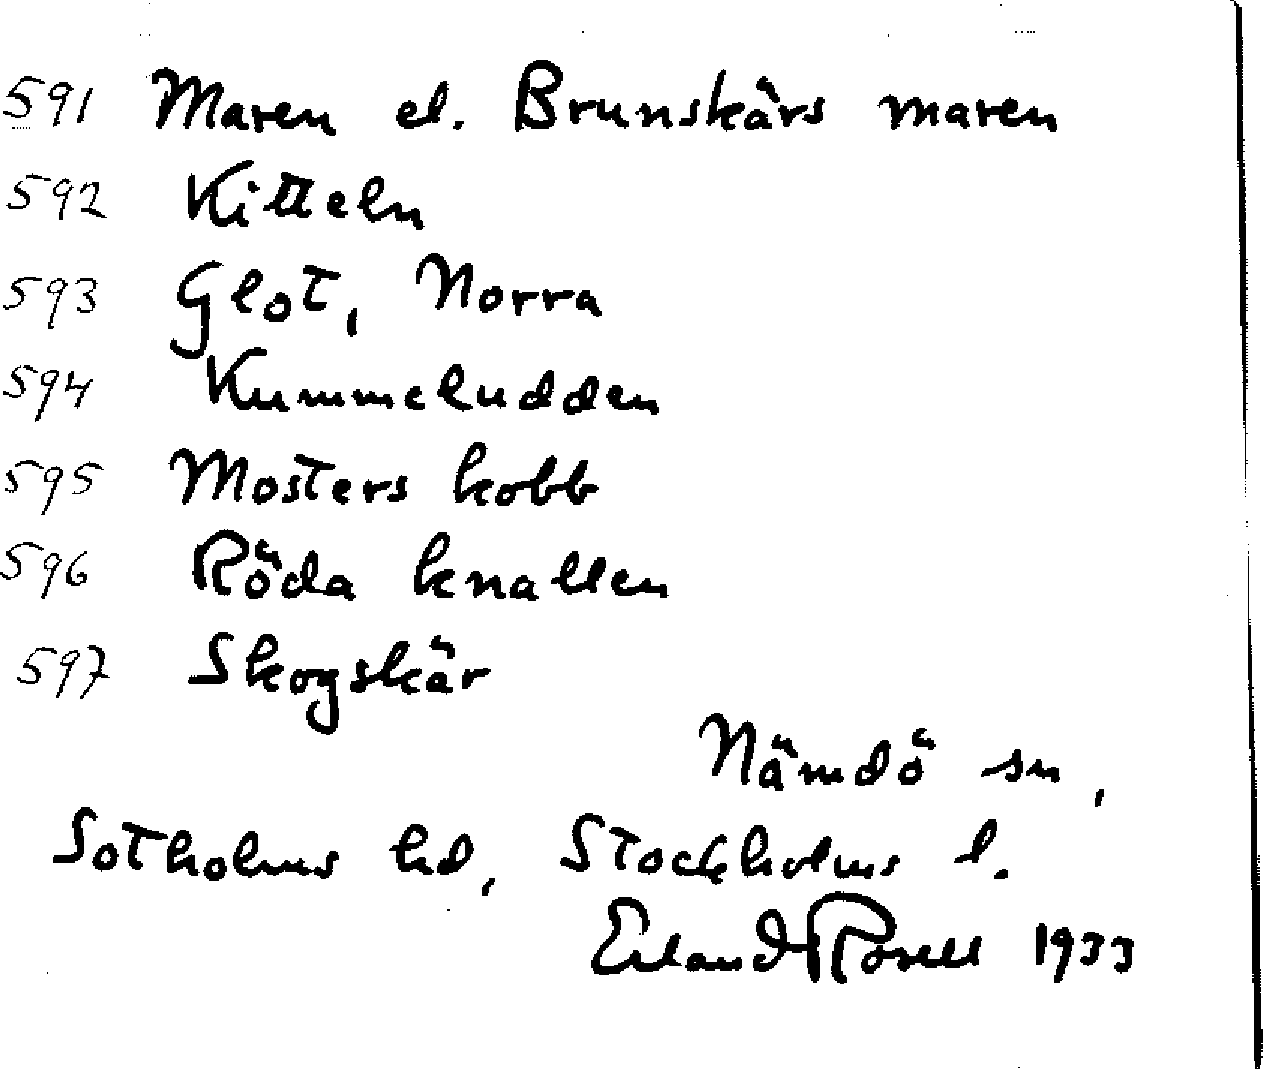 591 Maren el. Brunskärs maren
592 Kitteln
593 Glot, Norra
594 Kummeludden
595 Mosters kobb
596 Röda knallen
597 Skogskär
Nämdö sn,
Sotholms hd, Stockholms l.
Erland Rosell 1933